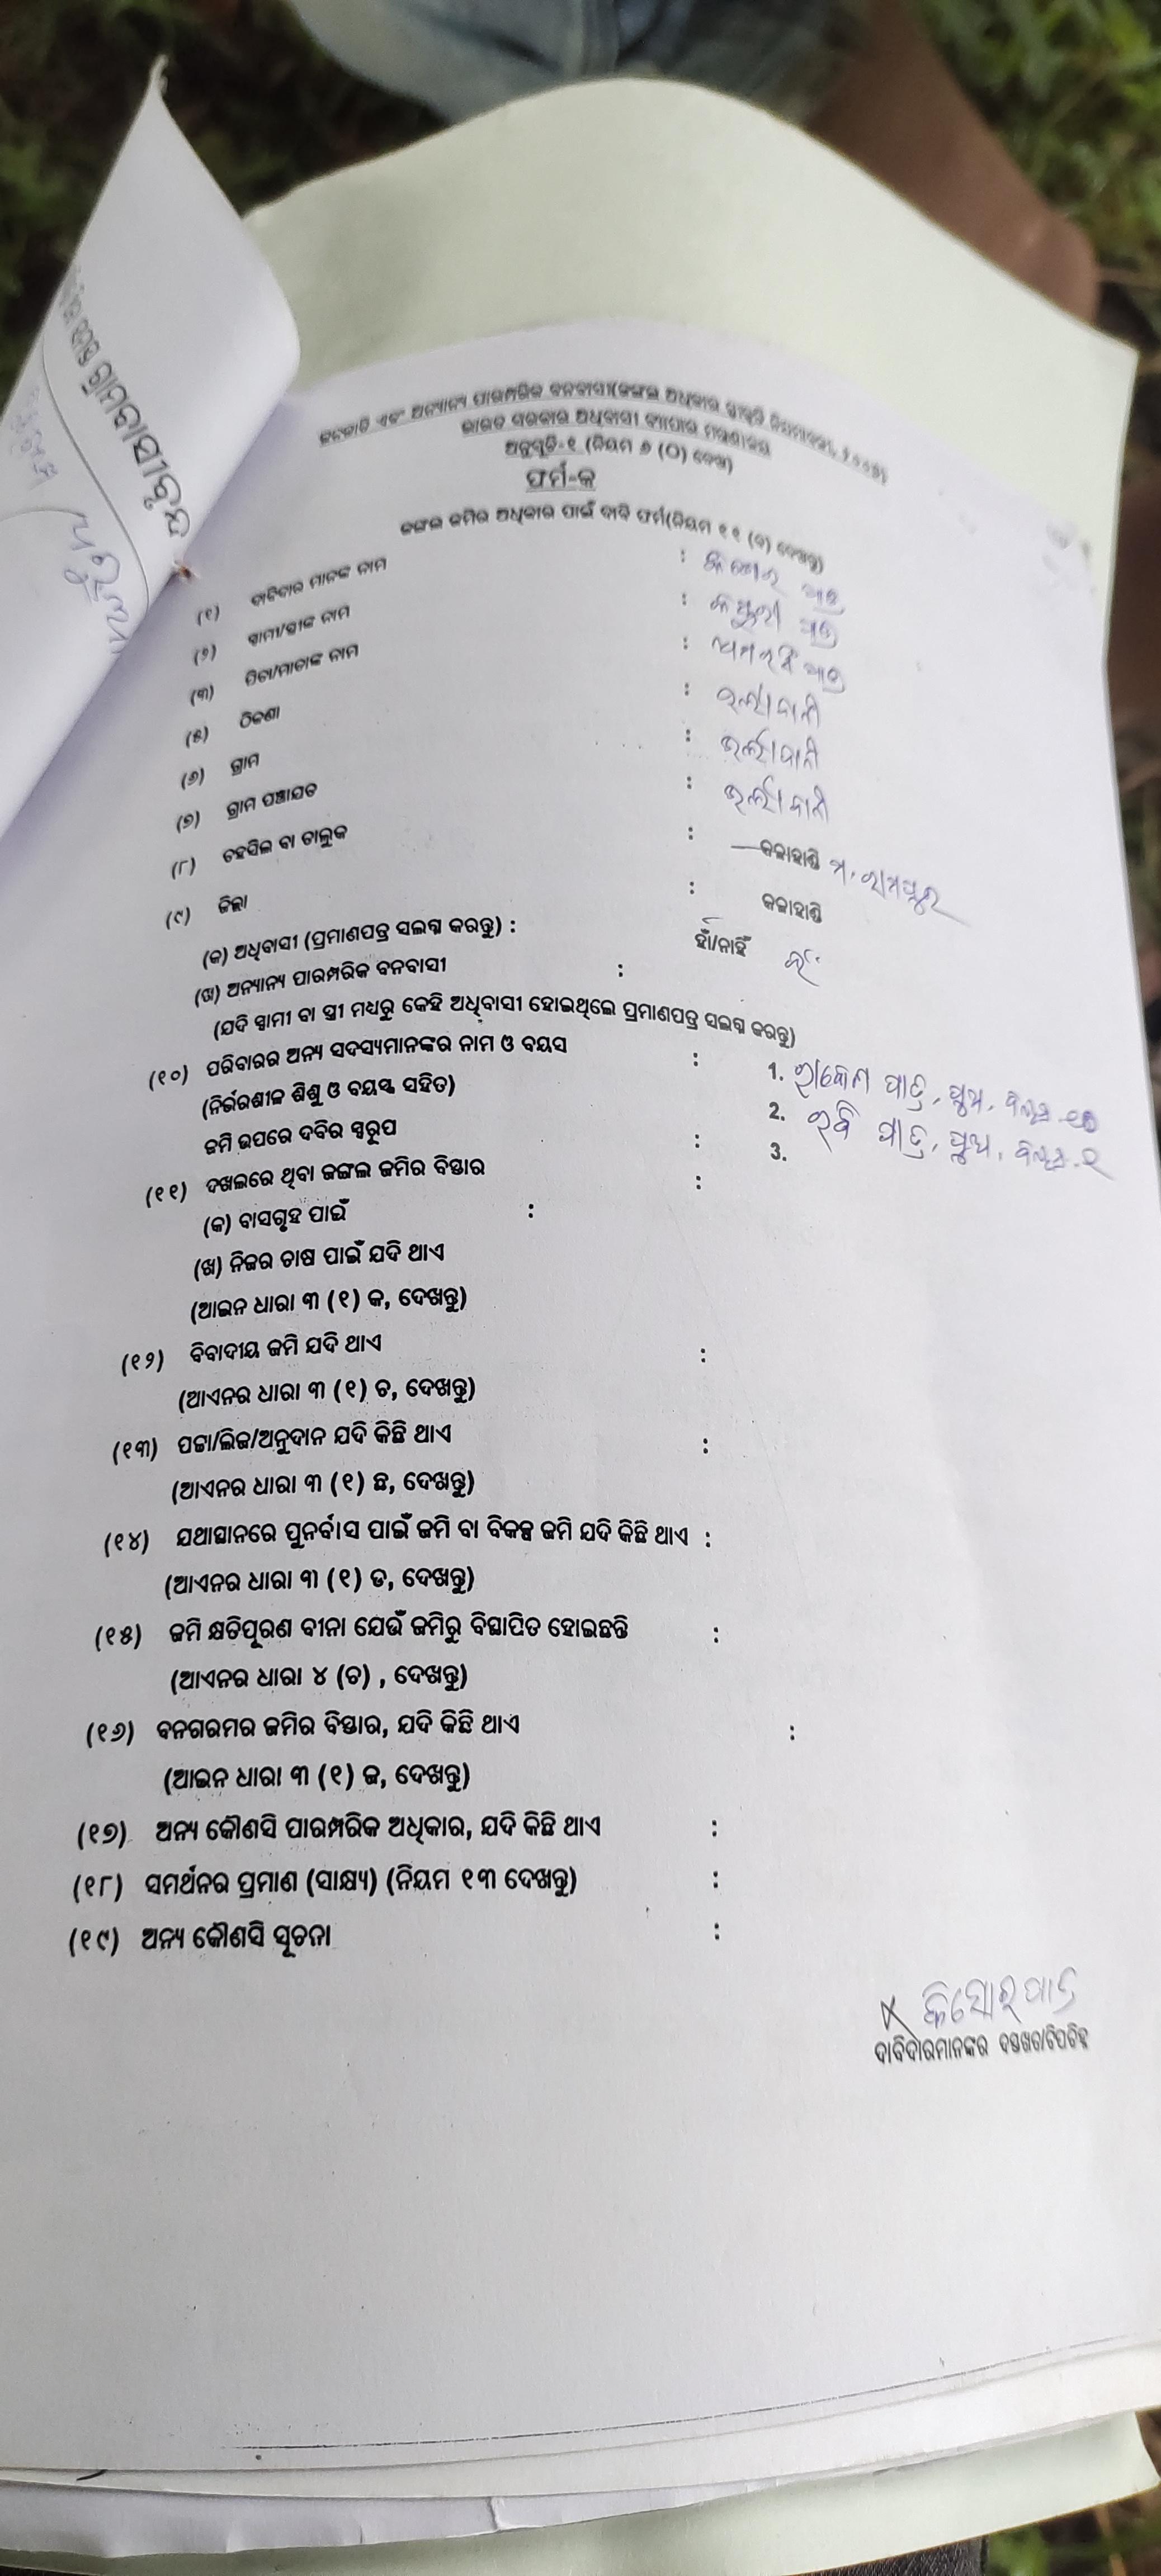 ଜନଜାତି ଏବଂ ଅନ୍ୟାନ୍ୟ ପାରମ୍ପରିକ ବନବାସୀ(ଜଙ୍ଗଲ ଅଧିକାର ସ୍ୱୀକୃତି ନିୟମାବଳୀ, ୨୦୦୭)
ଭାରତ ସରକାର ଅଧିବାସୀ ବ୍ୟାପାର ମନ୍ତ୍ରଣାଳୟ
ଅନୁସୂଚି-୧ (ନିୟମ ୬ (ଠ) ଦେଖ)
ଫର୍ମ-କ
ଜଙ୍ଗଲ ଜମିର ଅଧିକାର ପାଇଁ ଦାବି ଫର୍ମ(ନିୟମ ୧୧ (କ) ଦେଖନ୍ତୁ)
(୧) ଦାବିଦାର ମାନଙ୍କ ନାମ : କିଶୋର ପାତ୍ର
(୨) ସ୍ୱାମୀ/ସ୍ତ୍ରୀଙ୍କ ନାମ : ପାତ୍ର
(୩) ପିତା/ମାତାଙ୍କ ନାମ : ପାତ୍ର
(୫) ଠିକଣା :
(୬) ଗ୍ରାମ :
(୭) ଗ୍ରାମ ପଞ୍ଚାୟତ :
(୮) ତହସିଲ ବା ତାଲୁକ : କଳାହାଣ୍ଡି ମ. ରାମପୁର
(୯) ଜିଲ୍ଲା : କଳାହାଣ୍ଡି
(କ) ଅଧିବାସୀ (ପ୍ରମାଣପତ୍ର ସଲଗ୍ନ କରନ୍ତୁ) : ହଁ/ନାହିଁ
(ଖ) ଅନ୍ୟାନ୍ୟ ପାରମ୍ପରିକ ବନବାସୀ :
(ଯଦି ସ୍ୱାମୀ ବା ସ୍ତ୍ରୀ ମଧ୍ୟରୁ କେହି ଅଧିବାସୀ ହୋଇଥିଲେ ପ୍ରମାଣପତ୍ର ସଲଗ୍ନ କରନ୍ତୁ)
(୧୦) ପରିବାରର ଅନ୍ୟ ସଦସ୍ୟମାନଙ୍କର ନାମ ଓ ବୟସ : 1. ରାକେଶ ପାତ୍ର, ପୁଅ,
(ନିର୍ଭରଶୀଳ ଶିଶୁ ଓ ବୟସ୍କ ସହିତ) 2. ରବି ପାତ୍ର, ପୁଅ,
ଜମି ଉପରେ ଦବିର ସ୍ୱରୂପ : 3.
(୧୧) ଦଖଲରେ ଥିବା ଜଙ୍ଗଲ ଜମିର ବିସ୍ତାର :
(କ) ବାସଗୃହ ପାଇଁ :
(ଖ) ନିଜର ଚାଷ ପାଇଁ ଯଦି ଥାଏ
(ଆଇନ ଧାରା ୩ (୧) କ, ଦେଖନ୍ତୁ)
(୧୨) ବିବାଦୀୟ ଜମି ଯଦି ଥାଏ :
(ଆଏନର ଧାରା ୩ (୧) ଚ, ଦେଖନ୍ତୁ)
(୧୩) ପଟ୍ଟା/ଲିଜ/ଅନୁଦାନ ଯଦି କିଛି ଥାଏ :
(ଆଏନର ଧାରା ୩ (୧) ଛ, ଦେଖନ୍ତୁ)
(୧୪) ଯଥାସ୍ଥାନରେ ପୁନର୍ବାସ ପାଇଁ ଜମି ବା ବିକଳ୍ପ ଜମି ଯଦି କିଛି ଥାଏ :
(ଆଏନର ଧାରା ୩ (୧) ଡ, ଦେଖନ୍ତୁ)
(୧୫) ଜମି କ୍ଷତିପୂରଣ ବୀନା ଯେଉଁ ଜମିରୁ ବିସ୍ଥାପିତ ହୋଇଛନ୍ତି :
(ଆଏନର ଧାରା ୪ (ଚ) , ଦେଖନ୍ତୁ)
(୧୬) ବନଗରମର ଜମିର ବିସ୍ତାର, ଯଦି କିଛି ଥାଏ :
(ଆଇନ ଧାରା ୩ (୧) ଜ, ଦେଖନ୍ତୁ)
(୧୭) ଅନ୍ୟ କୌଣସି ପାରମ୍ପରିକ ଅଧିକାର, ଯଦି କିଛି ଥାଏ :
(୧୮) ସମର୍ଥନର ପ୍ରମାଣ (ସାକ୍ଷ୍ୟ) (ନିୟମ ୧୩ ଦେଖନ୍ତୁ) :
(୧୯) ଅନ୍ୟ କୌଣସି ସୂଚନା :
କିସୋର ପାତ୍ର
ଦାବିଦାରମାନଙ୍କର ଦସ୍ତଖତ/ଟିପଚିହ୍ନ
ଗ୍ରାମବାସୀବୃନ୍ଦ